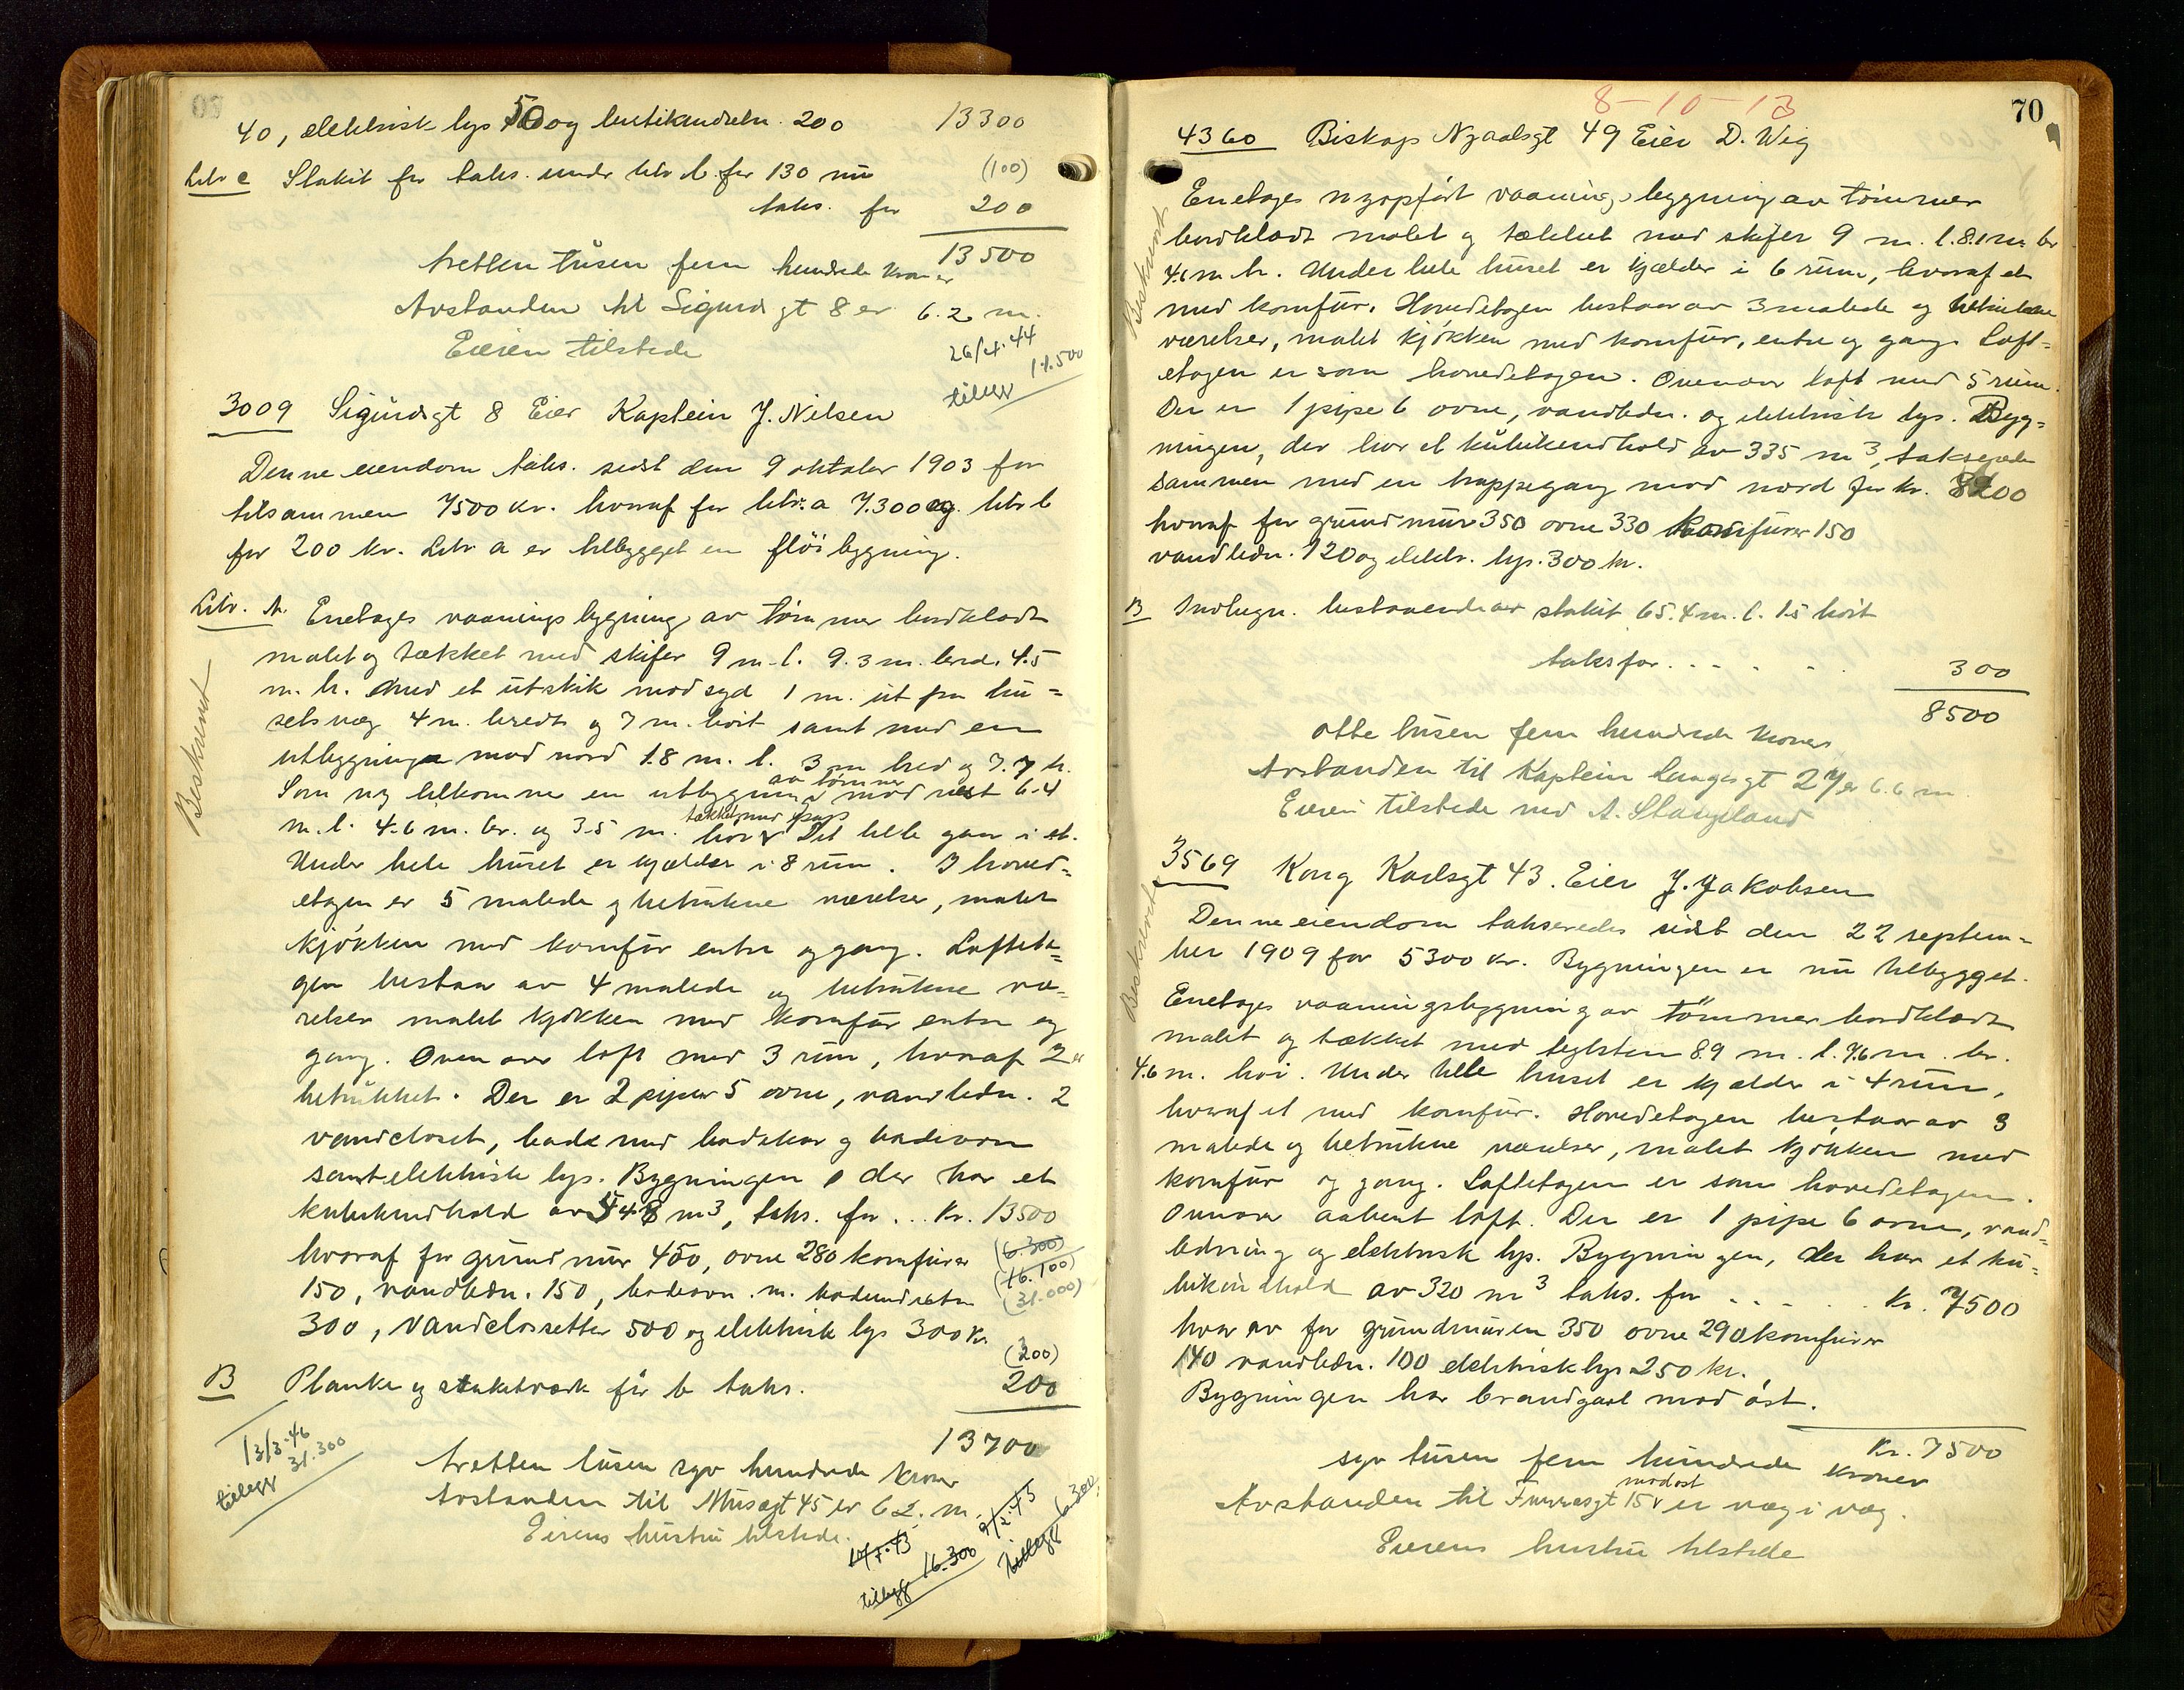 40, elektrisk lys 50 og butikindretn. 200 13300
Litr c Stakit før taks. under litr b. for 130 nu (100)
taks. for 200
13500
tretten tusen fem hundrede kroner
Avstanden til Sigurdsgt 8 er 6.2 m.
Eieren tilstede
26/4.44
tillegg 11.500
3009 Sigurdsgt 8 Eier Kaptein J. Nilsen
Denne eiendom taks. sidst den 9 oktober 1903 for
tilsammen 7500 kr. hvoraf for litr. a 7.300 og litr b
for 200 kr. Litr a er tilbygget en fløibygning.
Litr. A. Enetages vaaningsbygning av tømmer bordklædt
malet og tækket med skifer 9 m. l. 9.3 m. bred. 4.5
m. h. med et utstik mod syd 1 m. ut fra hu=
sets væg 4 m. bredt og 7 m. høit samt med en
utbygning mod nord 1.8 m. l. 3 m bred og 7.7 h.
Som ny tilkommer en utbygning av tømmer mod vest 6.4
m. l. 4.6 m. br. og 3.5 m. høi tækket med Det hele gaar i et.
Under hele huset er kjælder i 8 rum. I hoved=
etagen er 5 malede og betrukne værelser, malet
kjøkken med komfur entre og gang. Lofteta=
gen bestaar av 4 malede og betrukne væ=
relser malet kjøkken med komfur entre og
gang. Ovenover loft med 3 rum, hvoraf 2 er
betrukket. Der er 2 piper 5 ovne, vandledn. 2
vandcloset, bad med badekar og badeovn
samt elektrisk lys. Bygningen der har et
kubikindhold av 548 m3, taks. for ... Kr. 13500
hvoraf for grundmur 450, ovne 280 komfurer (6.300)
150, vandledn. 150, badeovn m. badeindretn (16.100)
(31.000)
300, vandclosetter 500 og elektrisk lys 300 kr.
(200)
B Planke og stakitværk før b taks. 200
13700
13/3-46
tillegg 31.300
tretten tusen syv hundrede kroner
Avstanden til Musegt 45 er 6.2. m.
Eierens hustru tilstede.
tillegg 16.300
9/2.43
tillegg 6.300
Beskrevet
8-10-13
70
4360 Biskop Njaalsgt 49 Eier D. Wig
Enetages nyopført vaaningsbygning av tømmer
bordklædt malet og tækket med skifer 9 m. l. 8.1 m. br
4.6 m h. Under hele huset er kjælder i 6 rum, hvoraf et
med komfur. Hovedetagen bestaar av 3 malede og betrukne
værelser, malet kjøkken med komfur, entre og gang. Loft=
etagen er som hovedetagen. Ovenover loft med 5 rum.
Der er 1 pipe 6 ovne, vandledn. og elektrisk lys. Byg=
ningen, der har et kubikindhold av 335 m3, takseredes
sammen med en trappegang mod nord for kr. 8200
hvoraf for grundmur 350 ovne 330 komfurer 150
vandledn. 120 og elektr. lys. 300 kr.
B Indhegn. bestaaende av stakit 65.4 m. l. 1.5 høit
taks for. . - - - . 300
8500
otte tusen fem hundrede kroner
Avstanden til Kaptein Langesgt 27 er 6.6 m
Eieren tilstede ved A. Stangeland
Beskrevet
3569 Kong Karlsgt 43. Eier J. Jakobsen
Denne eiendom takseredes sidst den 22 septem=
ber 1909 for 5300 kr. Bygningen er nu tilbygget.
Enetages vaaningsbygning av tømmer bordklædt
malet og tækket med teglsten 8.9 m. l. 7.6 m. br.
4.6 m. høi. Under hele huset er kjælder i 4 rum,
hvoraf et med komfur. Hovedetagen bestaar av 3
malede og betrukne værelser, malet kjøkken med
komfur og gang. Loftetagen er som hovedetagen.
Ovenover aabent loft. Der er 1 pipe 6 ovne, vand=
ledning og elektrisk lys. Bygningen, der har et ku=
bikindhold av 320 m3 taks. for - - - . . Kr. 7500
hvorav for grundmuren 350 ovne 290 komfurer
140 vandledn. 100 elektrisk lys 250 kr.
Bygningen har brandgavl mod øst.
Kr. 7500
syv tusen fem hundrede kroner
Avstanden til 15 mod øst er væg i væg.
Eierens hustru tilstede
Beskrevet